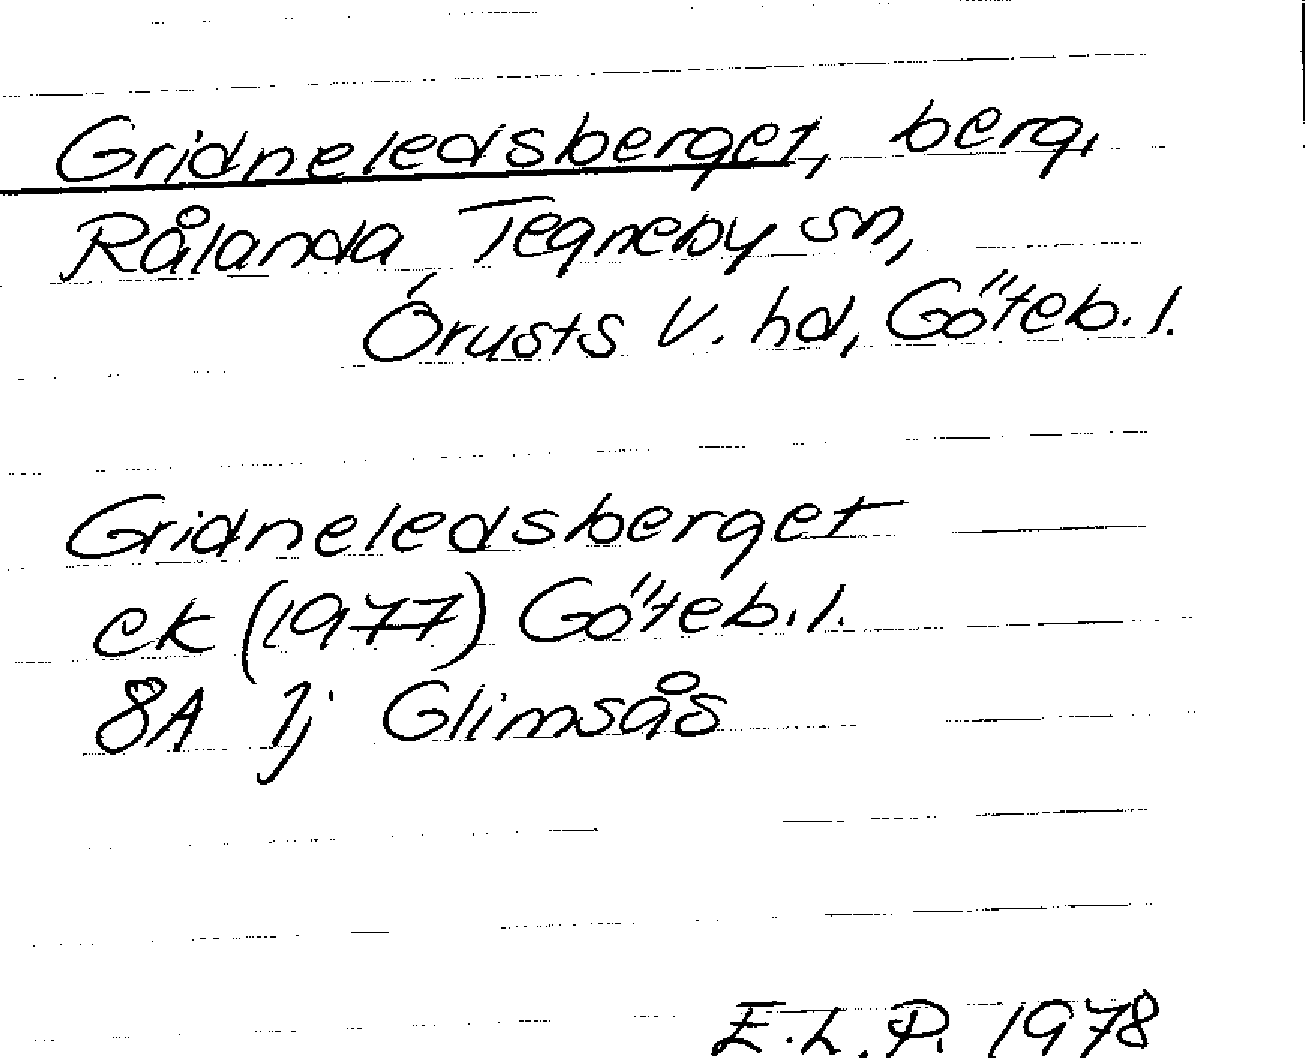 Gridneledsberget, berg,
Rålanda Tegneby sn,
Orusts V. hd, Göteb. l.
Gridneledsberget
ek (1977) Göteb. l.
8A 1j Glimsås
E.L.P. 1978